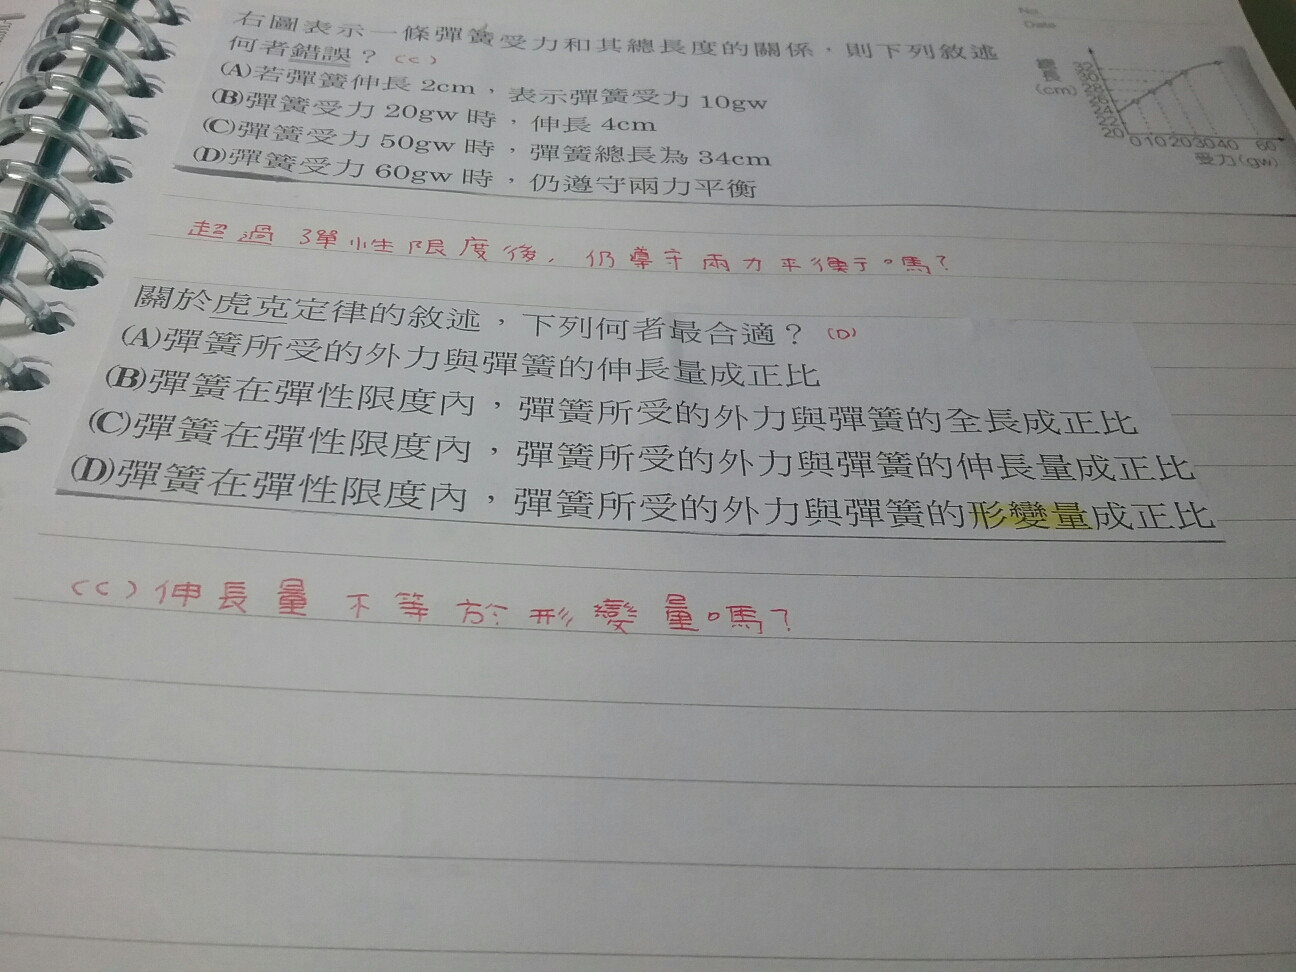 No.
Date
右圖表示一條彈簧受力和其總長度的關係，則下列敘述
何者錯誤？(C)
(A)若彈簧伸長2cm，表示彈簧受力10gw
(B)彈簧受力20gw時，伸長4cm
(C)彈簧受力50gw時，彈簧總長為34cm
(D)彈簧受力60gw時，仍遵守兩力平衡
長
(cm)
32
30
28
26
24
22
20
0 10 20 30 40 60
受力(gw)
超過彈性限度後，仍遵守兩力平衡嗎？
關於虎克定律的敘述，下列何者最合適？(D)
(A)彈簧所受的外力與彈簧的伸長量成正比
(B)彈簧在彈性限度內，彈簧所受的外力與彈簧的全長成正比
(C)彈簧在彈性限度內，彈簧所受的外力與彈簧的伸長量成正比
(D)彈簧在彈性限度內，彈簧所受的外力與彈簧的形變量成正比
(C)伸長量不等於形變量嗎？